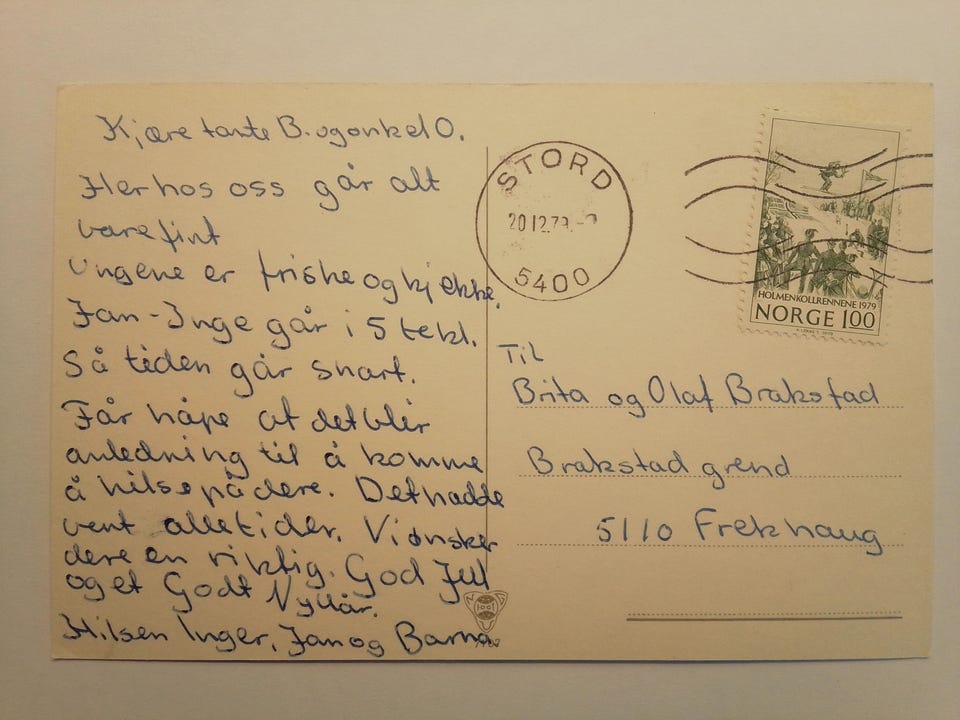 Kjære tante B. og onkel O.
Her hos oss går alt
bare fint
Ungene er friske og kjekke.
Jan-Inge går i 5te kl.
Så tiden går snart.
Får håpe at det blir
anledning til å komme
å hilse på dere. Det hadde
vert alletider. Vi ønsker
dere en riktig God Jul
og et Godt Nyttår.
Hilsen Inger, Jan og Barna
STORD
20 12.79.
5400
HOLMENKOLLRENNENE 1979
NORGE 100
Til
Brita og Olaf Brakstad
Brakstad grend
5110 Frekhaug